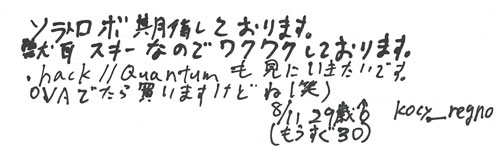 ソラトロボ期待しております。
獣耳スキーなのでワクワクしております。
.hack//Quantumも見にいきたいです。
OVAでたら買いますけどね(笑)
8/11 29歳♂ kocy_regno
(もうすぐ30)